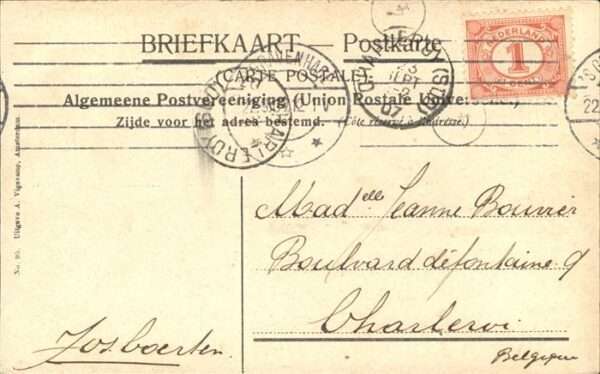 BRIEFKAART — Postkarte
(CARTE POSTALE)
Algemeene Postvereeniging (Union Postale Universelle)
Zijde voor het adres bestemd. (Côté réservé à l'adresse)
NEDERLAND
1
CENT
'S GRAVENHAGE
CHARLEROY (STATION)
CHARLEROY
22
No. 95. Uitgave A. Vigevano, Amsterdam.
Madelle Jeanne Bouvier
Boulvard défontaine 9
Charleroi
Belgique